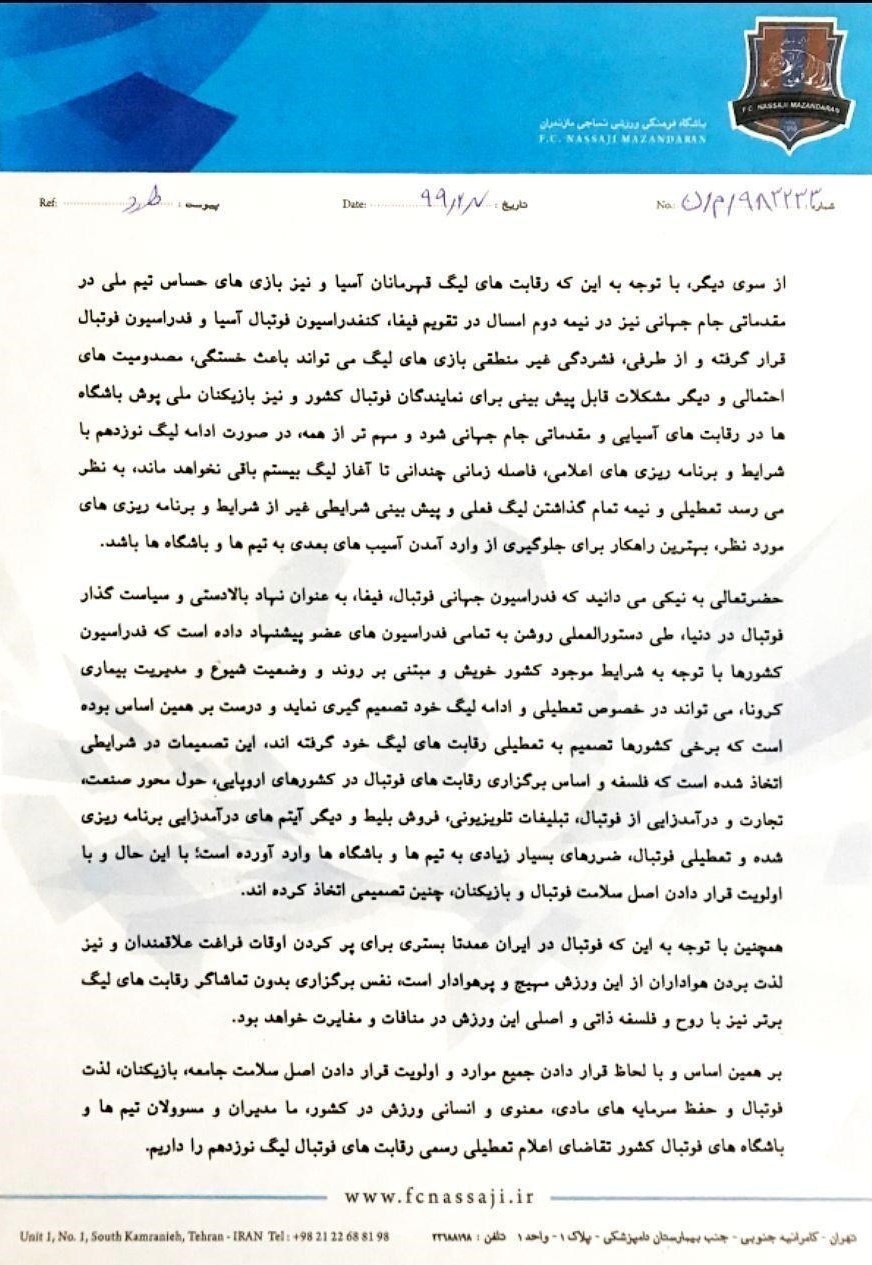 باشگاه فرهنگی ورزشی نساجی مازندران
F.C. NASSAJI MAZANDARAN
F.C. NASSAJI MAZANDARAN
شماره: No. ۹۸۳۲۳۳/م/ن
تاریخ: Date:
پیوست: Ref:
از سوی دیگر، با توجه به این که رقابت های لیگ قهرمانان آسیا و نیز بازی های حساس تیم ملی در
مقدماتی جام جهانی نیز در نیمه دوم امسال در تقویم فیفا، کنفدراسیون فوتبال آسیا و فدراسیون فوتبال
قرار گرفته و از طرفی، فشردگی غیر منطقی بازی های لیگ می تواند باعث خستگی، مصدومیت های
احتمالی و دیگر مشکلات قابل پیش بینی برای نمایندگان فوتبال کشور و نیز بازیکنان ملی پوش باشگاه
ها در رقابت های آسیایی و مقدماتی جام جهانی شود و مهم تر از همه، در صورت ادامه لیگ نوزدهم با
شرایط و برنامه ریزی های اعلامی، فاصله زمانی چندانی تا آغاز لیگ بیستم باقی نخواهد ماند، به نظر
می رسد تعطیلی و نیمه تمام گذاشتن لیگ فعلی و پیش بینی شرایطی غیر از شرایط و برنامه ریزی های
مورد نظر، بهترین راهکار برای جلوگیری از وارد آمدن آسیب های بعدی به تیم ها و باشگاه ها باشد.
حضرتعالی به نیکی می دانید که فدراسیون جهانی فوتبال، فیفا، به عنوان نهاد بالادستی و سیاست گذار
فوتبال در دنیا، طی دستورالعملی روشن به تمامی فدراسیون های عضو پیشنهاد داده است که فدراسیون
کشورها با توجه به شرایط موجود کشور خویش و مبتنی بر روند و وضعیت شیوع و مدیریت بیماری
کرونا، می تواند در خصوص تعطیلی و ادامه لیگ خود تصمیم گیری نماید و درست بر همین اساس بوده
است که برخی کشورها تصمیم به تعطیلی رقابت های لیگ خود گرفته اند، این تصمیمات در شرایطی
اتخاذ شده است که فلسفه و اساس برگزاری رقابت های فوتبال در کشورهای اروپایی، حول محور صنعت،
تجارت و درآمدزایی از فوتبال، تبلیغات تلویزیونی، فروش بلیط و دیگر آیتم های درآمدزایی برنامه ریزی
شده و تعطیلی فوتبال، ضررهای بسیار زیادی به تیم ها و باشگاه ها وارد آورده است؛ با این حال و با
اولویت قرار دادن اصل سلامت فوتبال و بازیکنان، چنین تصمیمی اتخاذ کرده اند.
همچنین با توجه به این که فوتبال در ایران عمدتا بستری برای پر کردن اوقات فراغت علاقمندان و نیز
لذت بردن هواداران از این ورزش مهیج و پرهوادار است، نفس برگزاری بدون تماشاگر رقابت های لیگ
برتر نیز با روح و فلسفه ذاتی و اصلی این ورزش در منافات و مغایرت خواهد بود.
بر همین اساس و با لحاظ قرار دادن جمیع موارد و اولویت قرار دادن اصل سلامت جامعه، بازیکنان، لذت
فوتبال و حفظ سرمایه های مادی، معنوی و انسانی ورزش در کشور، ما مدیران و مسوولان تیم ها و
باشگاه های فوتبال کشور تقاضای اعلام تعطیلی رسمی رقابت های فوتبال لیگ نوزدهم را داریم.
www.fcnassaji.ir
تهران - کامرانیه جنوبی - جنب بیمارستان دامپزشکی - پلاک ۱ - واحد ۱ تلفن : ۲۲۶۸۸۱۹۸
Unit 1, No. 1, South Kamranieh, Tehran - IRAN Tel : +98 21 22 68 81 98